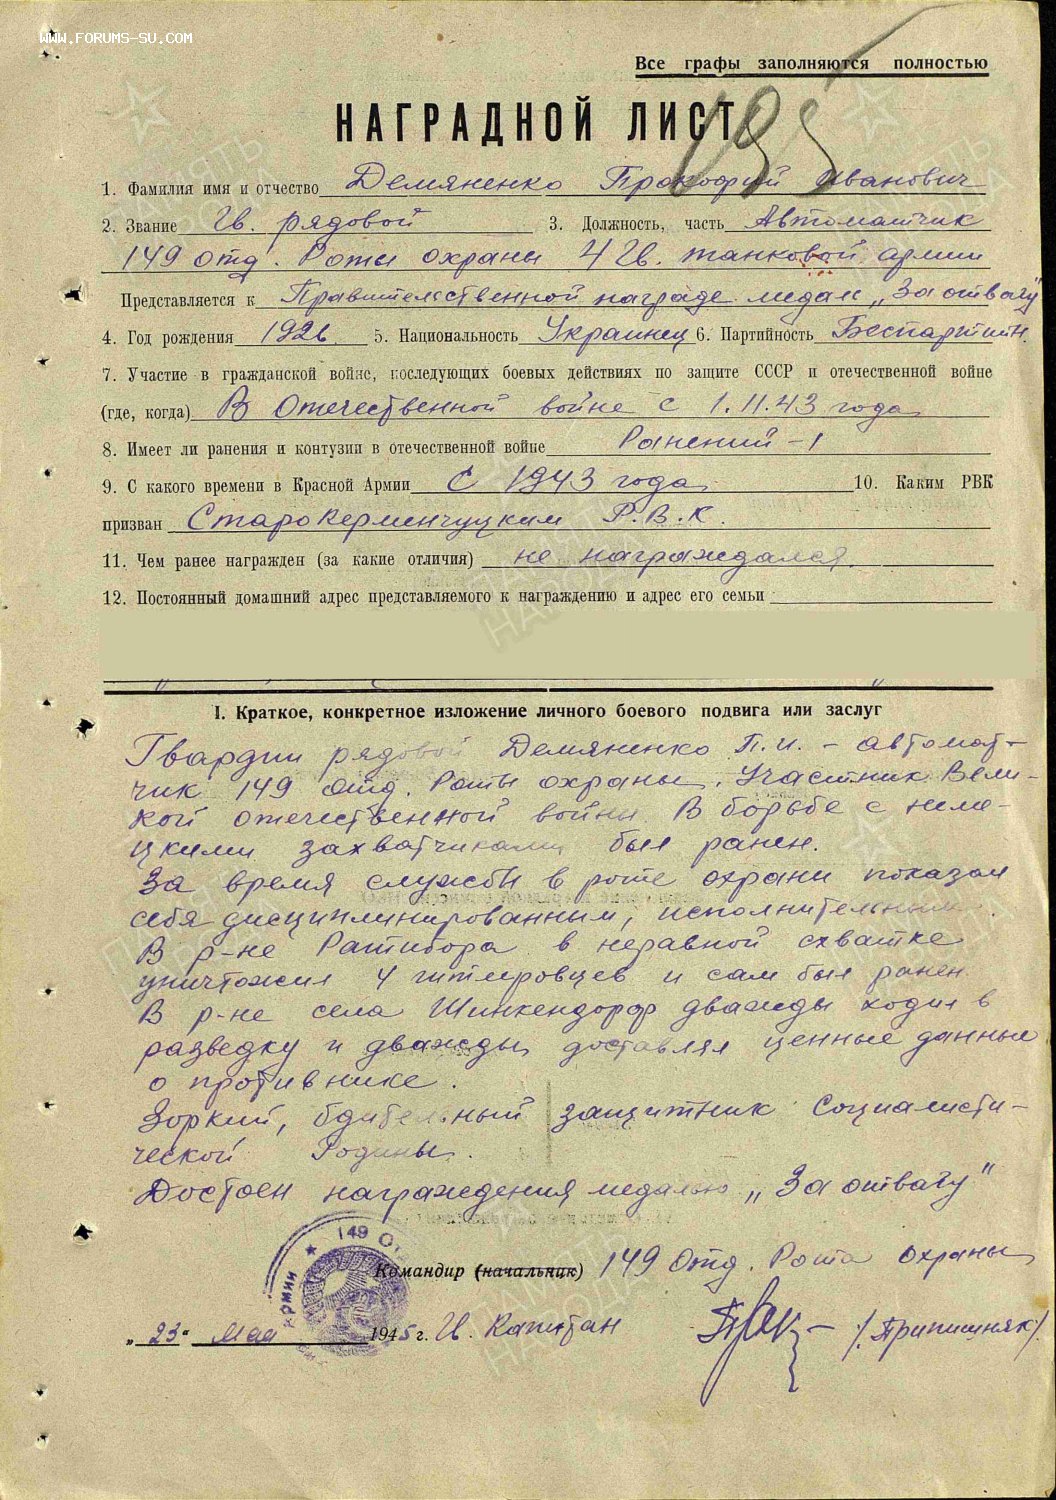 www.forums-su.com
Все графы заполняются полностью
195
НАГРАДНОЙ ЛИСТ
1. Фамилия имя и отчество Демяненко Прокофий Иванович
2. Звание Гв. рядовой 3. Должность, часть Автоматчик
149 отд. Роты охраны 4 Гв. танковой армии
Представляется к Правительственной награде медали „За отвагу"
4. Год рождения 1926 5. Национальность Украинец 6. Партийность Беспартийн.
7. Участие в гражданской войне, последующих боевых действиях по защите СССР и отечественной войне
(где, когда) В Отечественной войне с 1.11.43 года
8. Имеет ли ранения и контузии в отечественной войне Ранений – 1
9. С какого времени в Красной Армии С 1943 года 10. Каким РВК
призван Старокерменчуцким Р.В.К.
11. Чем ранее награжден (за какие отличия) не награждался.
12. Постоянный домашний адрес представляемого к награждению и адрес его семьи
I. Краткое, конкретное изложение личного боевого подвига или заслуг
Гвардии рядовой Демяненко П.И. – автомат–
чик 149 отд. Роты охраны. Участник Вели–
кой отечественной войны. В борьбе с неме–
цкими захватчиками был ранен.
За время службы в роте охрани показал
себя дисциплинированним, исполнительным.
В р-не Ратибора в неравной схватке
уничтожил 4 гитлеровцев и сам был ранен.
В р-не села Шинкендорф дважды ходил в
разведку и дважды доставлял ценные данные
о противнике.
Зоркий, бдительный защитник социалисти–
ческой Родины.
Достоен награждения медалью „За отвагу"
149 От
армии
Командир (начальник) 149 отд. Рота охраны
„23" Мая 1945 г. Гв. Капитан /Припишняк/